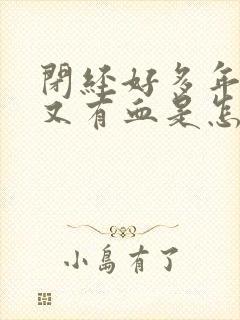 閉經好多年
又有血是怎
小島有了